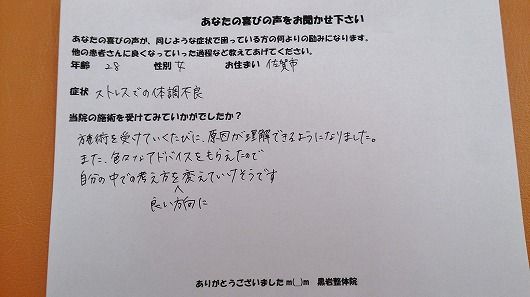 あなたの喜びの声をお聞かせ下さい
あなたの喜びの声が、同じような症状で困っている方の何よりの励みになります。
他の患者さんに良くなっていった過程など教えてあげてください。
年齢 28 性別 女 お住まい 佐賀市
症状 ストレスでの体調不良
当院の施術を受けてみていかがでしたか?
施術を受けていくたびに、原因が理解できるようになりました。
また、色々なアドバイスをもらえたので
自分の中での考え方を変えていけそうです
良い方向に
ありがとうございました m(__)m 黒岩整体院